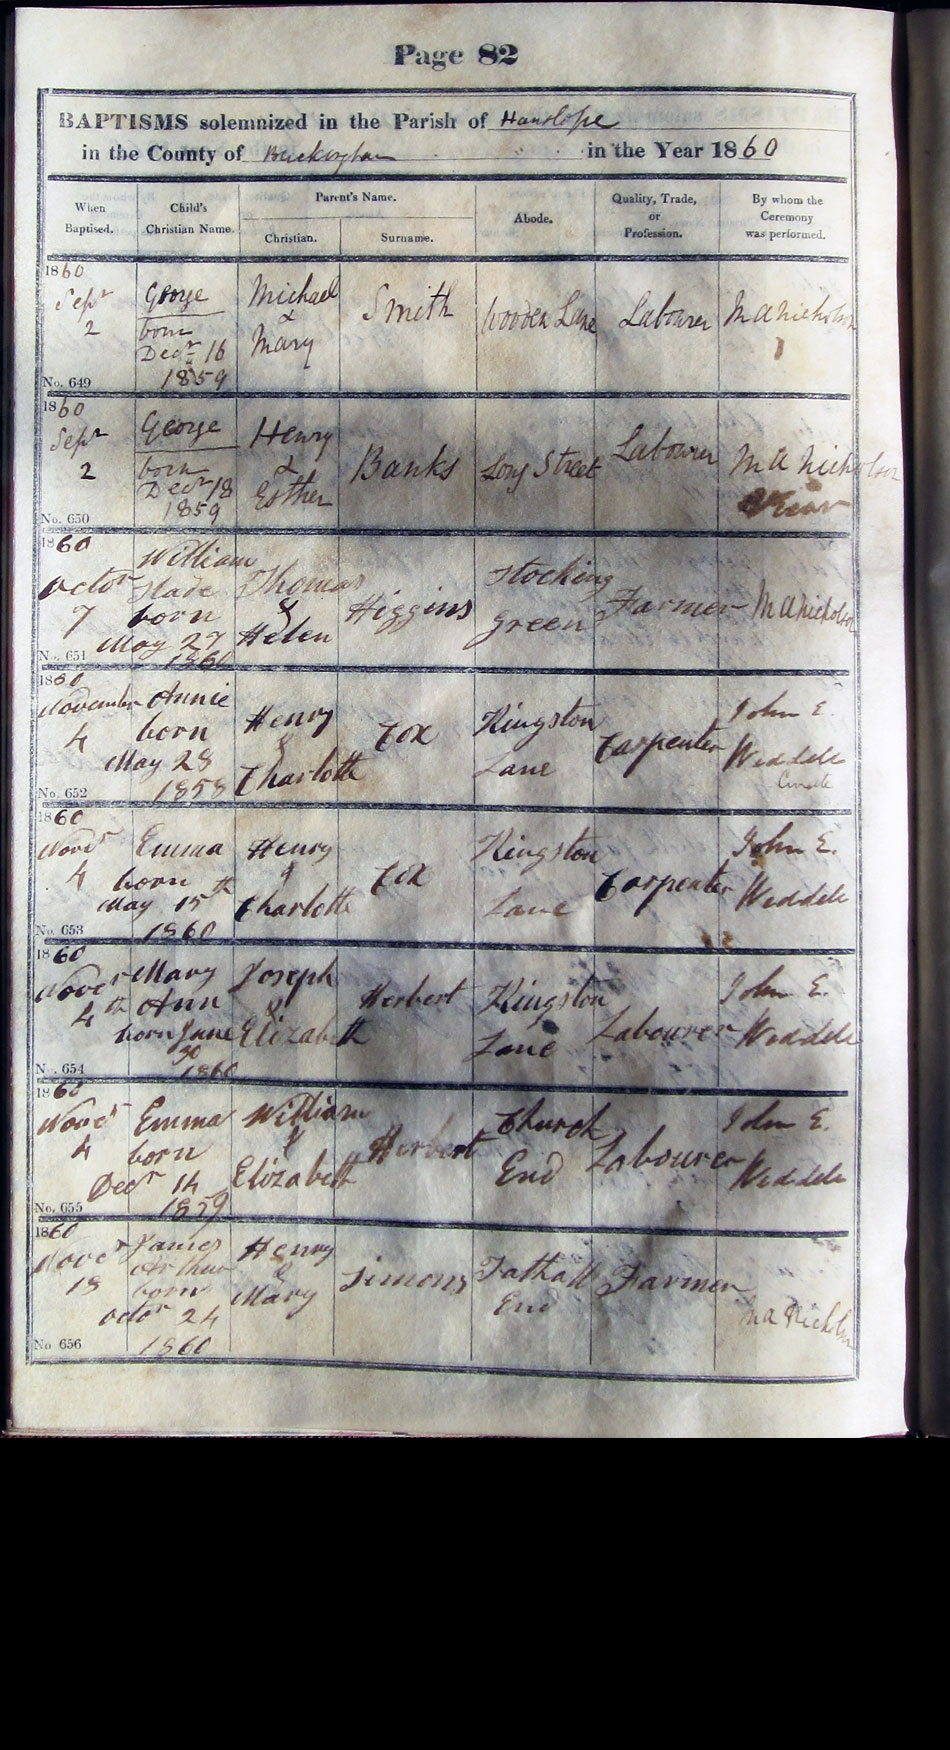 Page 82
BAPTISMS solemnized in the Parish of Hanslope
in the County of Buckingham in the Year 1860
When Baptised.
Child's Christian Name.
Parent's Name.
Christian.
Surname.
Abode.
Quality, Trade, or Profession.
By whom the Ceremony was performed.
1860
Sepr
2
No. 649
George
born
Decr 16
1859
Michael
&
Mary
Smith
Labourer
M A Nicholson
1860
Sepr
2
No. 650
George
born
Decr 18
1859
Henry
&
Esther
Banks
Long Street
Labourer
M A Nicholson
Vicar
1860
Octor
7
No. 651
William
Slade
born
May 27
1860
Thomas
&
Helen
Higgins
Stocking
Green
Farmer
M A Nicholson
1860
November
4
No. 652
Annie
born
May 28
1858
Henry
&
Charlotte
Cox
Kingston
Lane
Carpenter
John E.
Weddell
Curate
1860
Novr
4
No. 653
Emma
born
May 15th
1860
Henry
&
Charlotte
Cox
Kingston
Lane
Carpenter
John E.
Weddell
1860
Novr
4th
No. 654
Mary
Ann
born June
30
1860
Joseph
&
Elizabeth
Herbert
Kingston
Lane
Labourer
John E.
Weddell
1860
Novr
4
No. 655
Emma
born
Decr 14
1859
William
&
Elizabeth
Herbert
Church
End
Labourer
John E.
Weddell
1860
Novr
18
No. 656
James
Arthur
born
Octor 24
1860
Henry
&
Mary
Simons
Tathall
End
Farmer
M A Nicholson